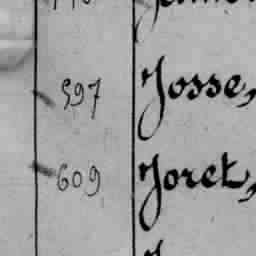 597 Josse,
609 Joret,